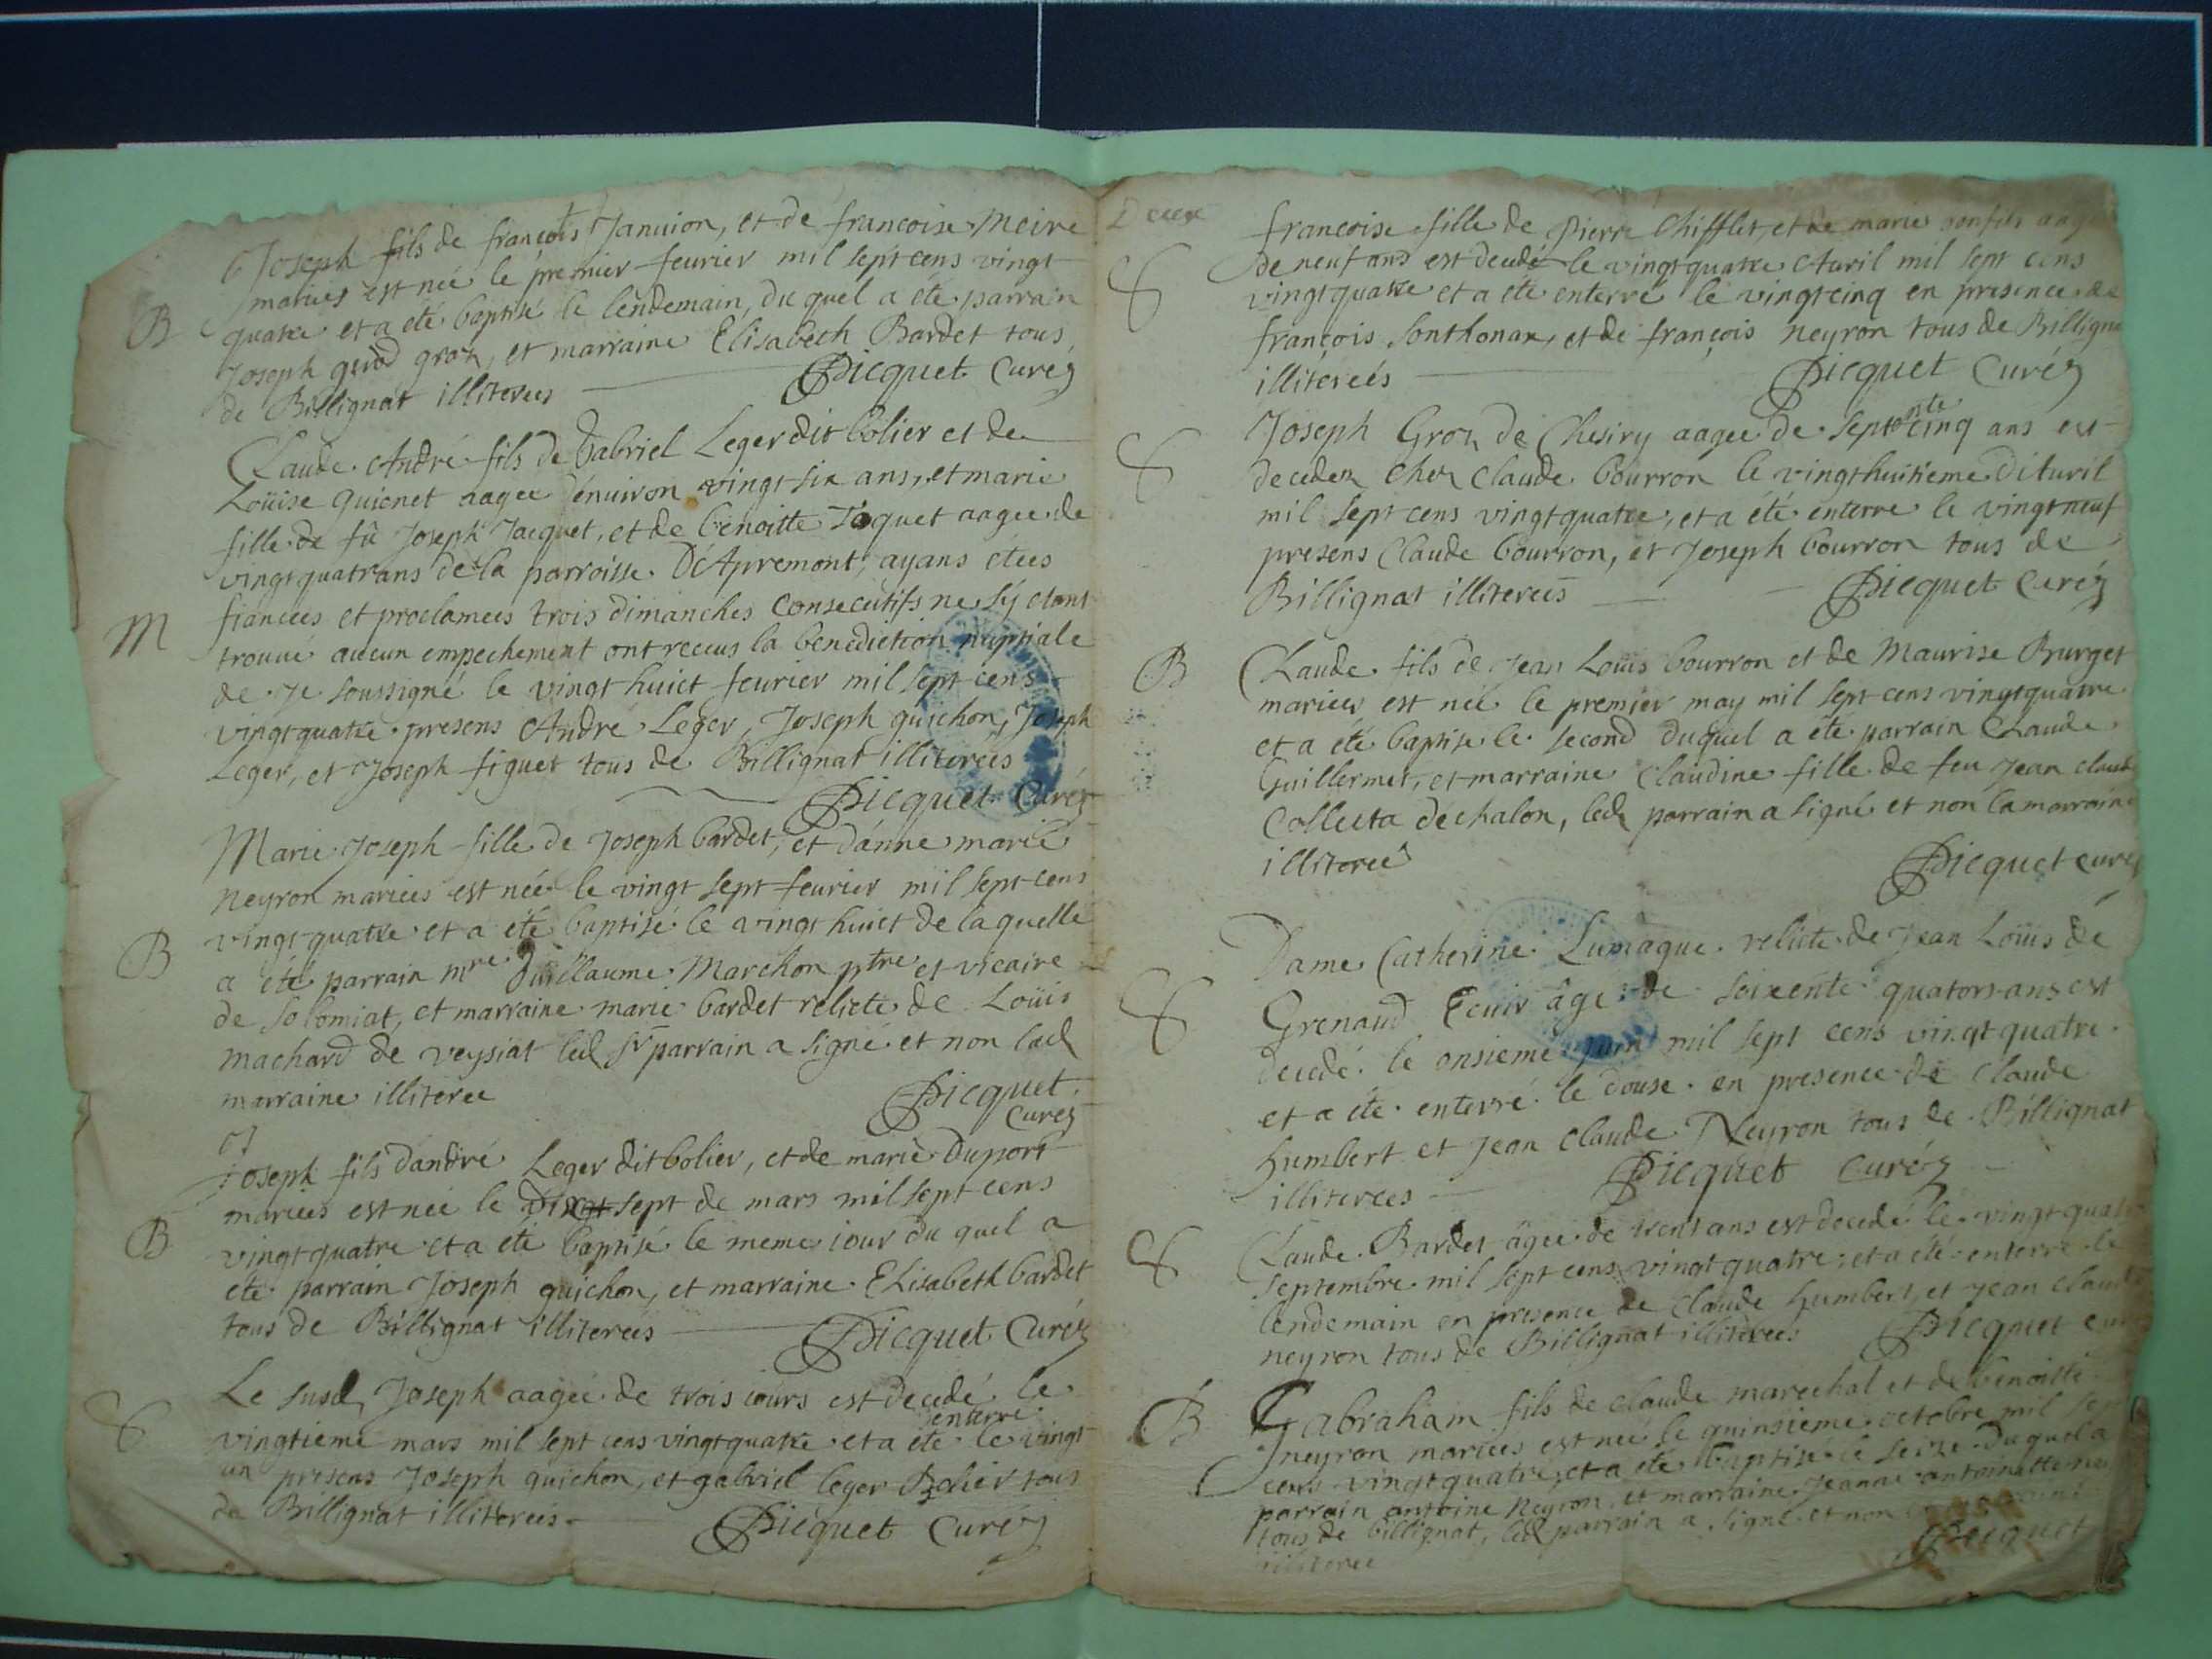 Joseph fils de françois Januion, et de francoise Meire
mariés est née le premier feurier mil sept cens vingt
B
quatre et a été baptisé le lendemain, du quel a été parrain
Joseph groz, et marraine Elisabeth Bardet tous
de Billignat illiterees Picquet Curéz
Claude André fils de Gabriel Leger dit bolier et de
Loüise guionet aagee d'enuiron vingt six ans, et marie
fille de fû Joseph Jacquet, et de benoitte Jaquet aagee de
vingt quatrans de la parroisse D'Apremont, ayans étées
fiancées et proclamees trois dimanches consecutifs ne s'ÿ etant
M
trouué aucun empechement ont receus la benediction nuptiale
de je soussigné le vingt huict feurier mil sept cens
vingtquatre presens André Leger, Joseph guichon, Joseph
Leger, et Joseph figuet tous de Billignat illiterées
Picquet Curéz
Marie Joseph fille de Joseph bardet, et d'anne marie
neyron mariees est née le vingt sept feurier mil sept cens
vingt quatre et a été baptisé le vingt huict de laquelle
B
a été parrain mre Guillaume Marchon ptre et vicaire
de Solomiat, et marraine marie bardet relicte de Loüis
machard de veysiat led sr parrain a signé et non lad
marraine illiteree
Picquet
Curez
Joseph fils d'andré Leger dit bolier, et de marie Duport
mariees est née le Dix sept de mars mil sept cens
B
vingt quatre et a été baptisé le meme iour du quel a
eté parrain Joseph guichon, et marraine Elisabeth bardet
tous de Billignat illiterées Picquet Curéz
Le susd Joseph aagée de trois iours est decedé le
vingtieme mars mil sept cens vingtquatre et a été enterré le vingt
un presens Joseph guichon, et gabriel leger Bolier tous
de Billignat illiterées Picquet Curéz
francoise fille de Pierre Chifflet, et de marie
de neuf ans est decedé le vingtquatre Auril mil sept cens
vingtquatre et a eté enterré le vingtcinq en presence de
françois Sonthonax, et de françois neyron tous de Billigna
illiterées Picquet Curéz
Joseph Groz de Chesiry aagee de septente cinq ans est
decedez chez Claude bourron le vingthuitieme d'Auril
mil sept cens vingtquatre, et a été enterre le vingtneuf
presens Claude bourron, et Joseph bourron tous de
Billignat illiterées Picquet Curéz
B
Claude fils de Jean Loüis bourron et de Maurise Burget
mariees est née le premier may mil sept cens vingtquatre
et a été baptisé le second duquel a été parrain Claude
Guillermet, et marraine Claudine fille de feu Jean claude
Collecta déchalon, led parrain a signé et non la marraine
illiteree
Picquet curez
Dame Catherine Lumaque relicte de Jean Loüis de
Grenaud Ecuir âge de soixente quators ans est
decedé le onsieme juin mil sept cens vingt quatre
et a été enterré le douse en presence de Claude
humbert et Jean Claude Neyron tous de Billignat
illiterees Picquet Curéz
Claude Bardet âgee de trent ans est decedé le vingt quatre
septembre mil sept cens vingt quatre, et a été enterre le
lendemain en presence de Claude humbert, et Jean Claude
neyron tous de Billignat illiterées Picquet cur
B
Gabraham fils de claude marechal et de benoitte
neyron mariees est née le quinsieme octobre mil sep
cens vingtquatre, et a été baptisé le seize duquel a
parrain antoine neyron, et marraine Jeanne antoinette
tous de billignat, led parrain a signé et non
illiteree Picquet